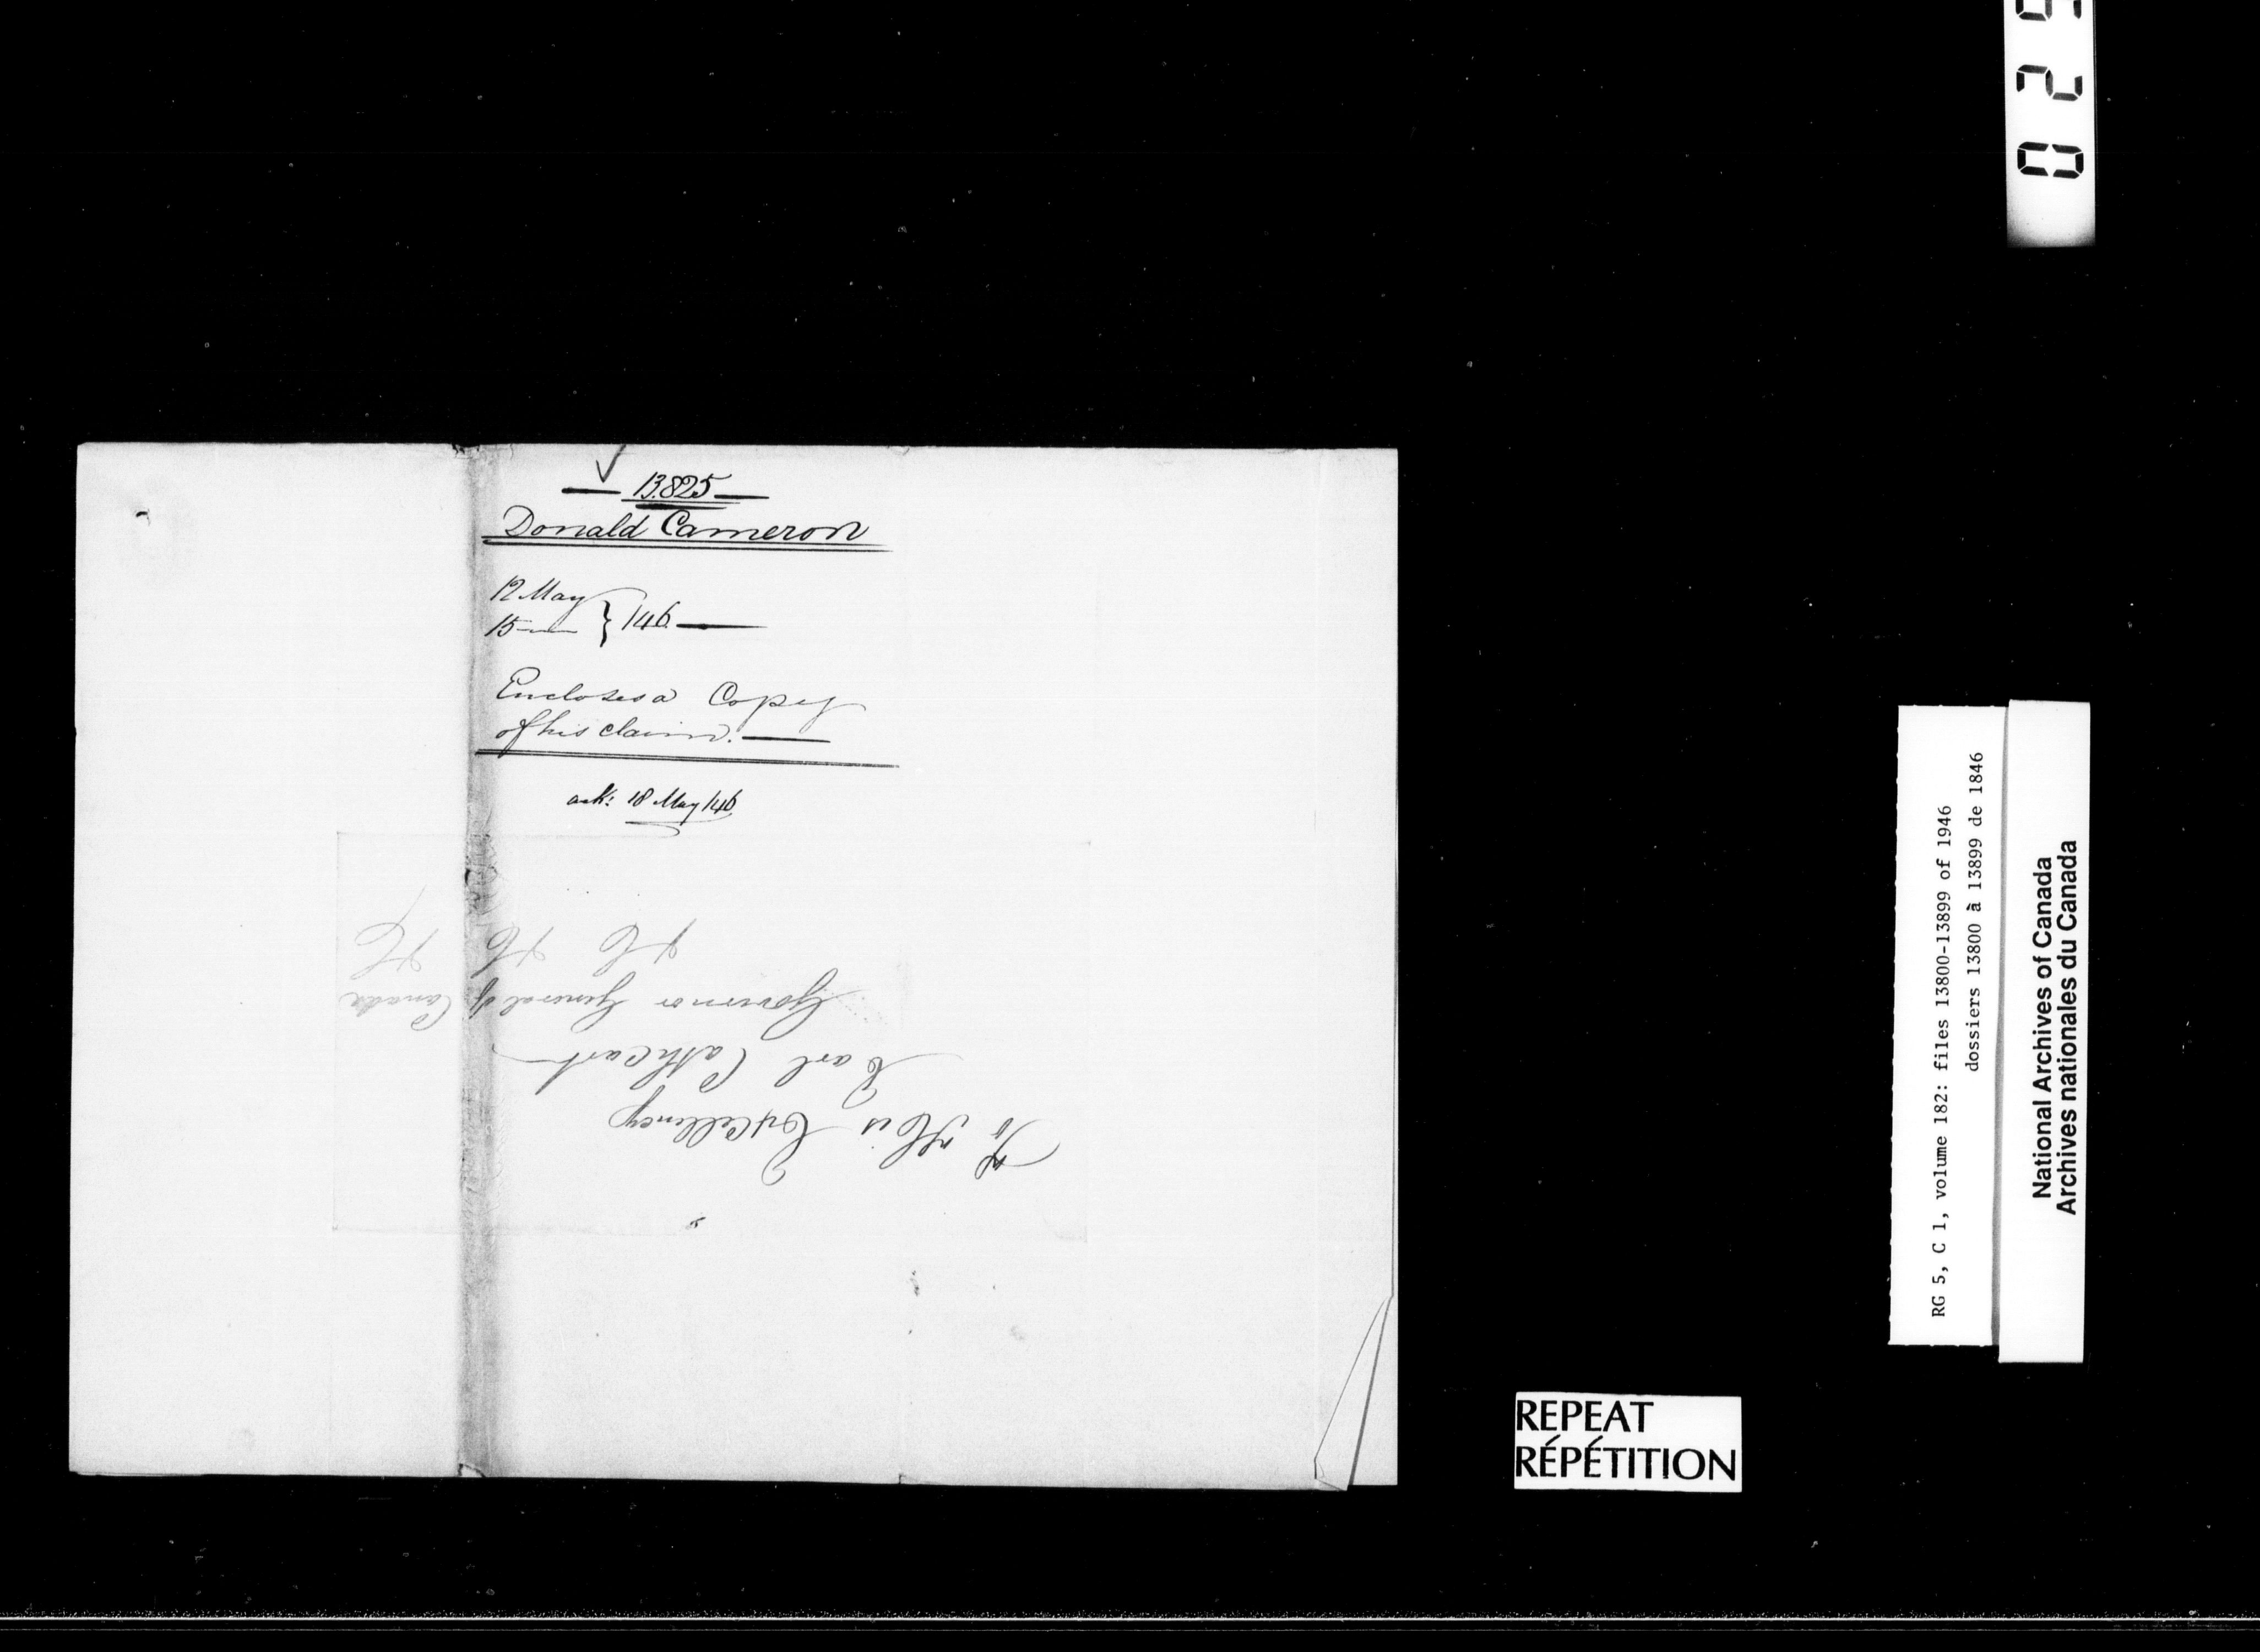 13.825
Donald Cameron
12 May
15 — } /46.
Encloses a Copy
of his claim.
ack: 18 May /46
To His Excellency
Earl Cathcart
Governor General of Canada
&c &c &c
RG 5, C 1, volume 182: files 13800-13899 of 1946
dossiers 13800 à 13899 de 1846
National Archives of Canada
Archives nationales du Canada
REPEAT
RÉPÉTITION